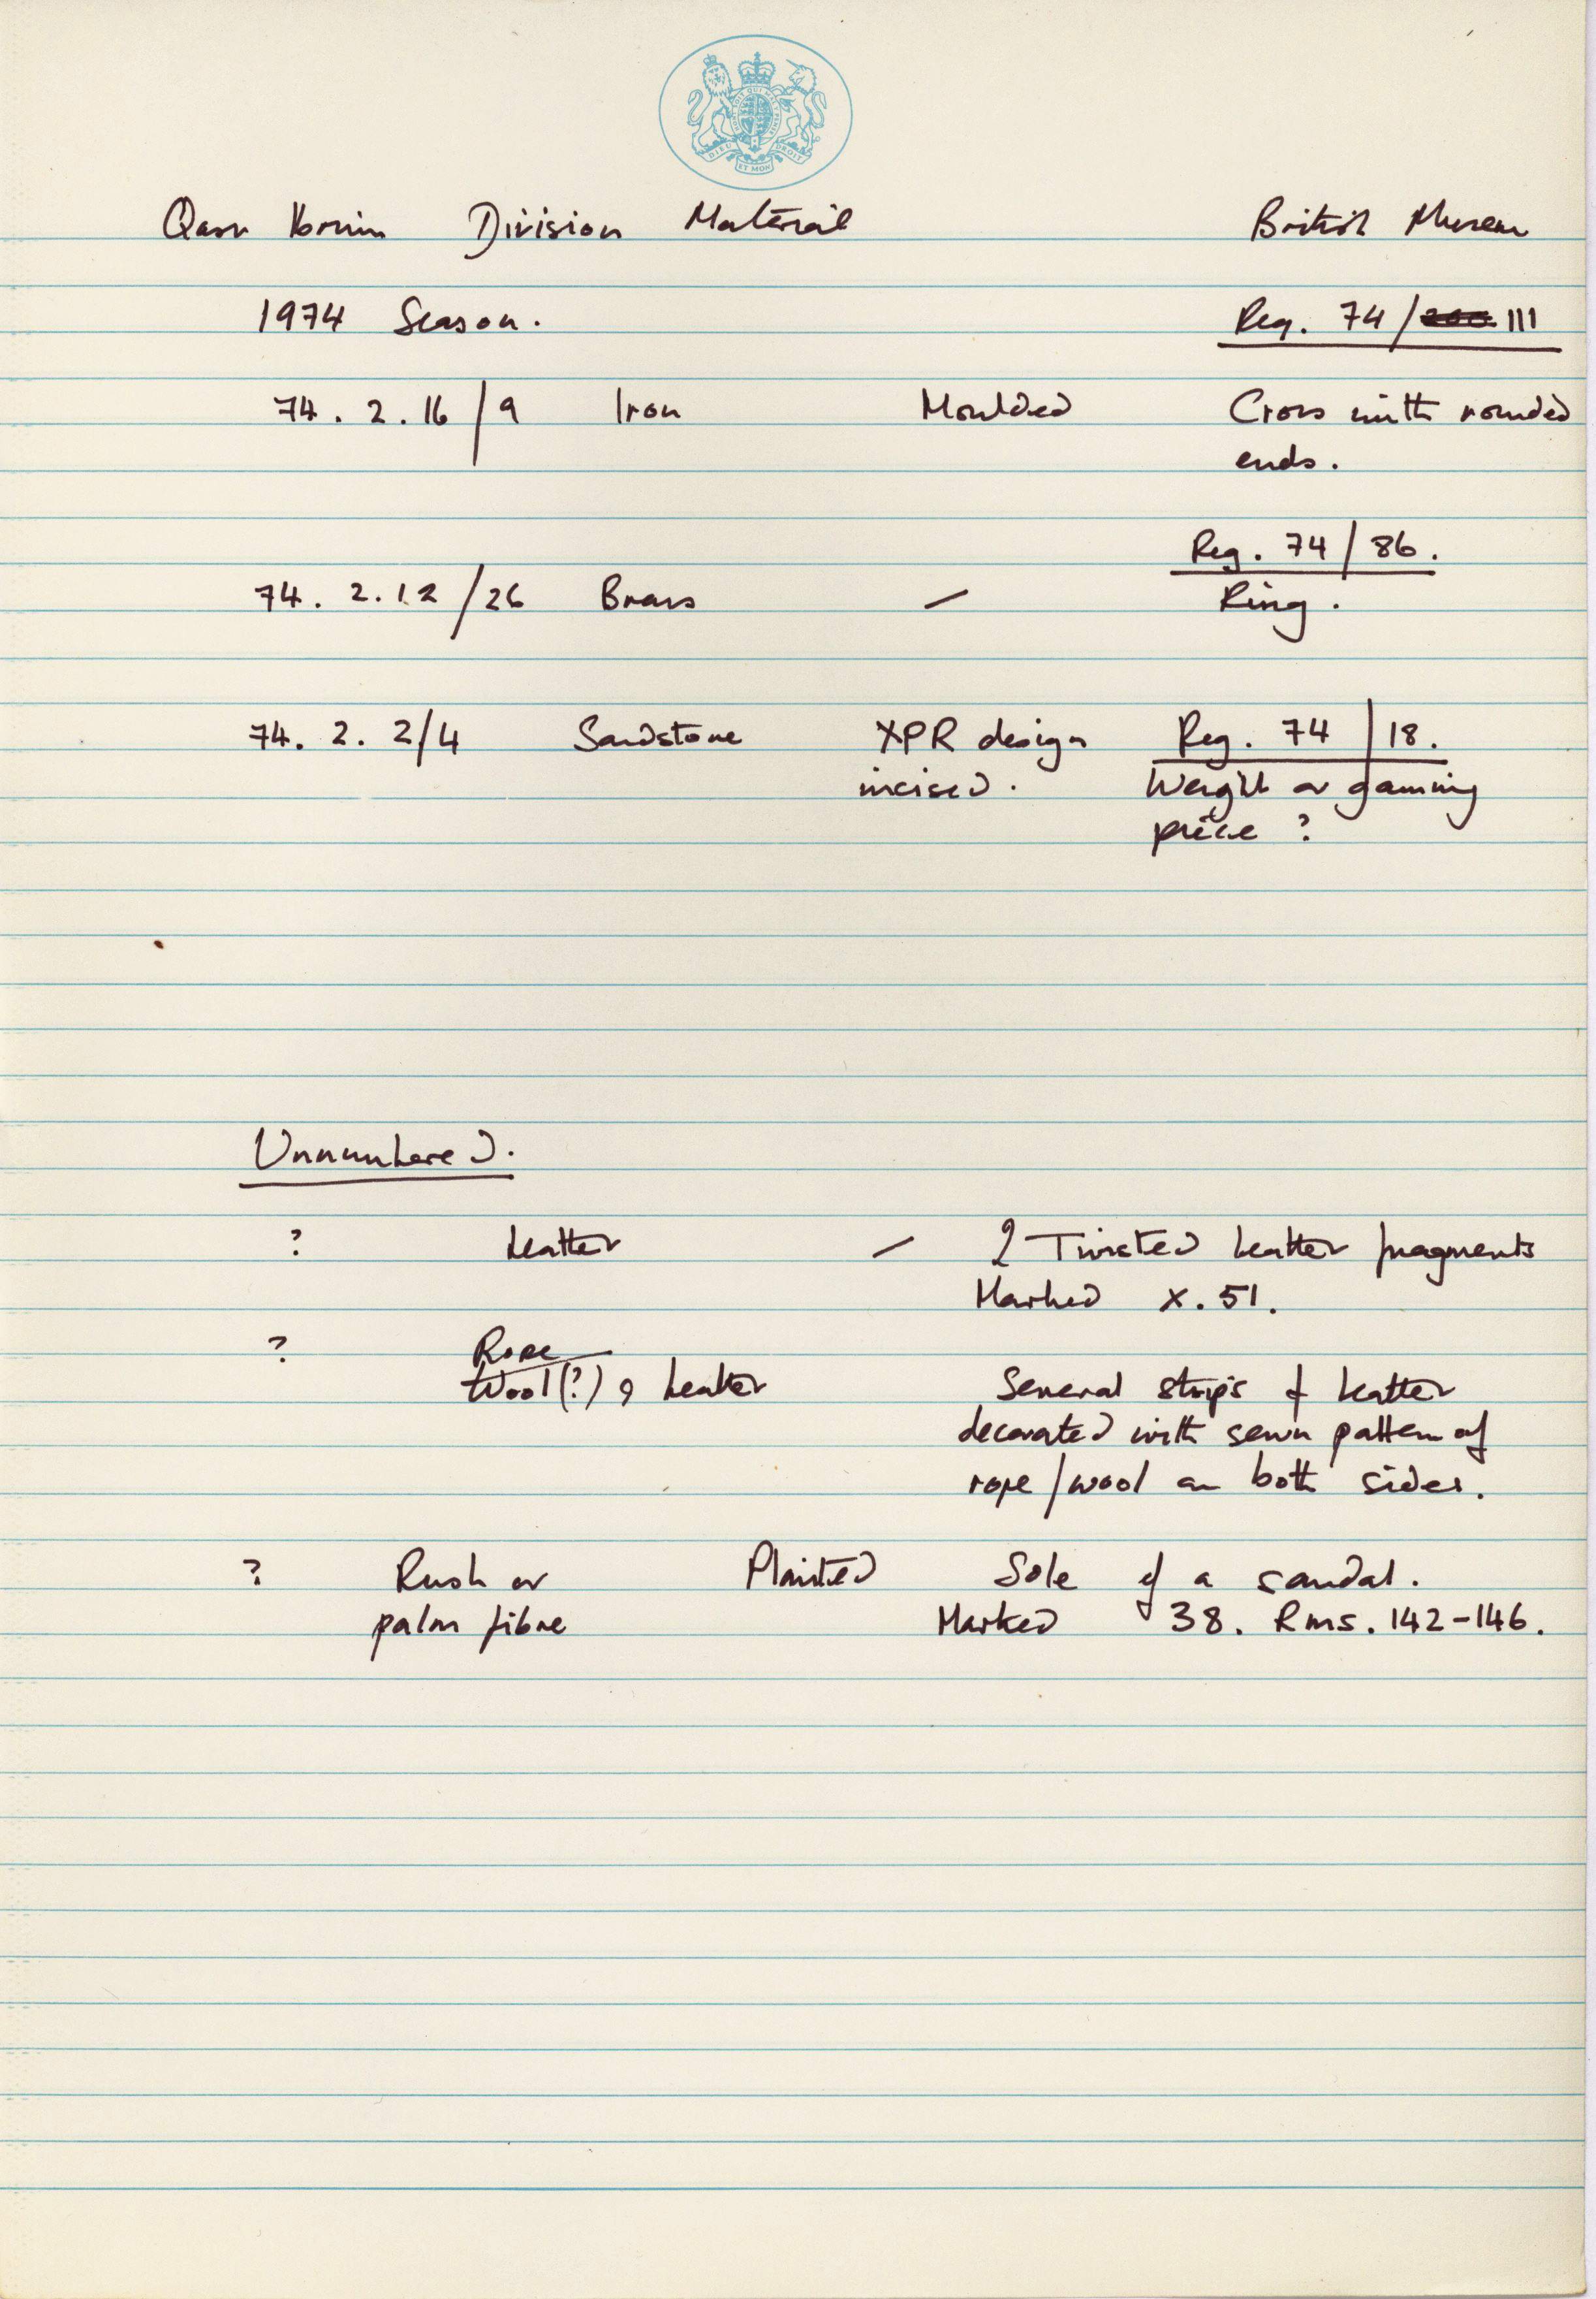 HONI SOIT QUI MAL Y PENSE
DIEU ET MON DROIT
Qasr Ibrim Division Material British Museum
1974 Season. Reg. 74/111
74.2.16/9 Iron Moulded Cross with rounded
ends.
Reg. 74/86.
74.2.12/26 Brass – Ring.
74.2.2/4 Sandstone XPR design Reg. 74/18.
incised. Weight or gaming
piece ?
Unnumbered.
? Leather – 2 Twisted leather fragments
Marked X.51.
? Rope
Wool(?), Leather Several strips of leather
decorated with sewn pattern of
rope/wool on both sides.
? Rush or Plaited Sole of a sandal.
palm fibre Marked 38. Rms. 142-146.